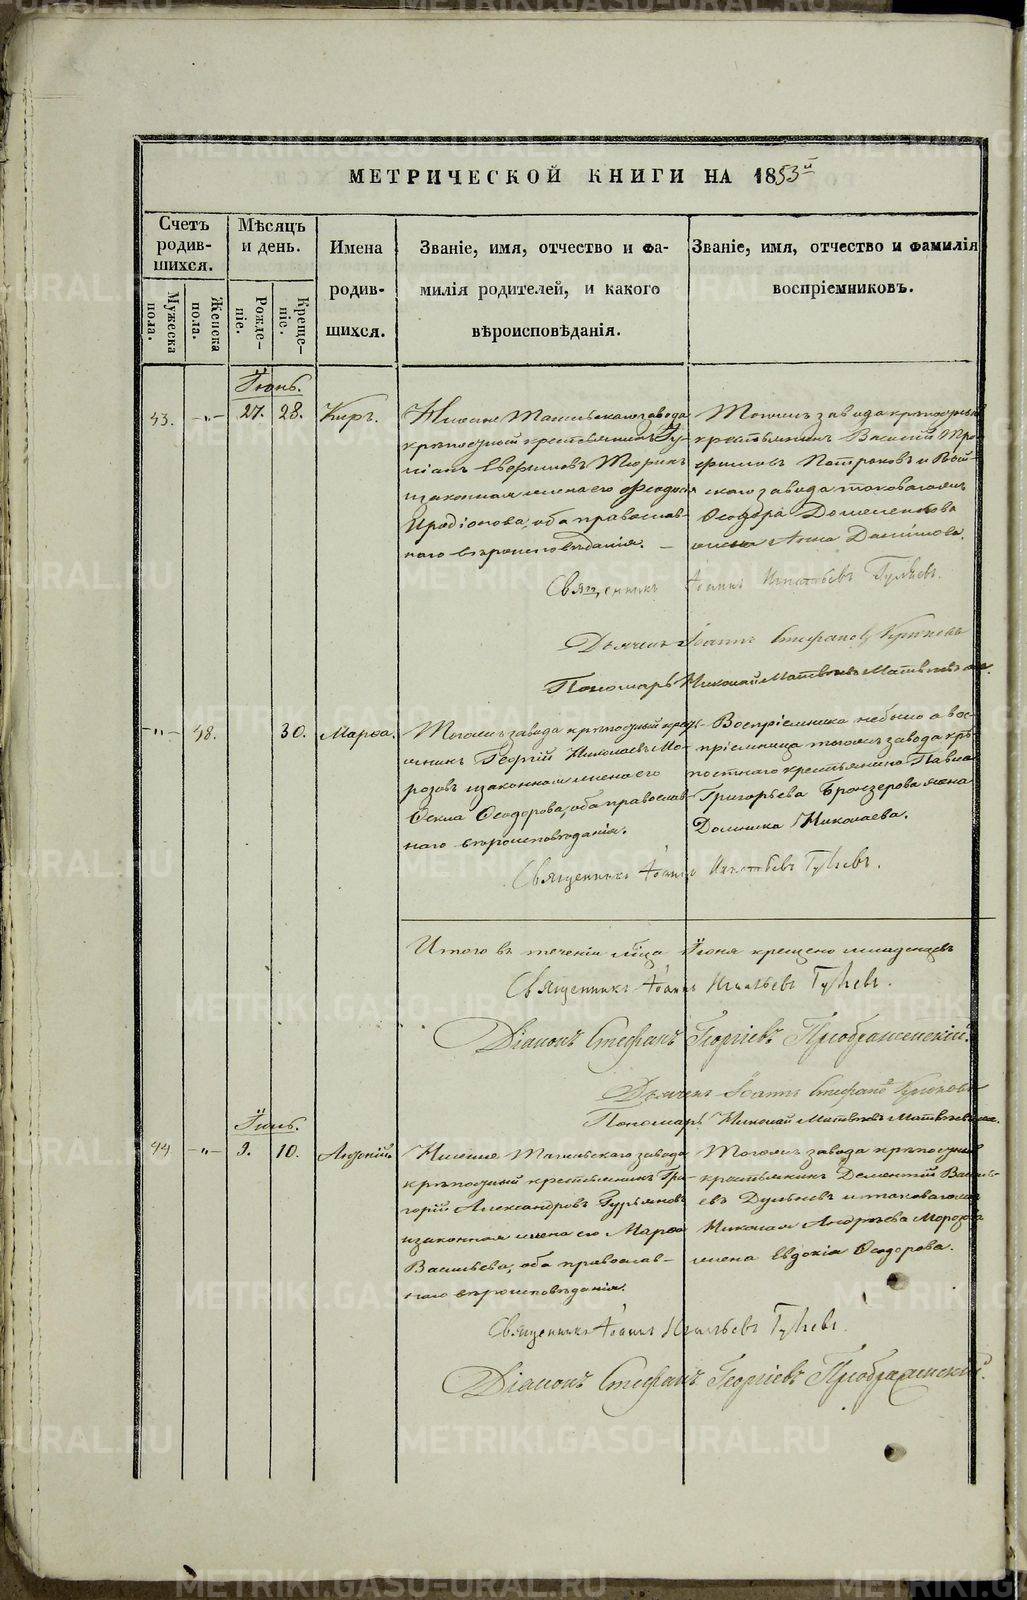 МЕТРИЧЕСКОЙ КНИГИ НА 1853й
Счетъ родив-шихся.
Мужеска пола.
Женска пола.
Мѣсяцъ и день.
Рожде-ніе.
Креще-ніе.
Имена родив-шихся.
Званіе, имя, отчество и фа-
милія родителей, и какого
вѣроисповѣданія.
Званіе, имя, отчество и фамилія
воспріемниковъ.
Іюнь.
43. -„- 27. 28. Киръ.
Нижне Тагильскаго завода
крѣпостный крестьянинъ
Евфимовъ Тюринъ
и законная жена его Феодосія
Иродіонова, оба православ-
наго вѣроисповѣданія.
Тогожъ завода крѣпостный
крестьянинъ Василій Тро-
фимовъ Патраковъ и
скаго завода таковагожъ
Ѳеодора
жена Анна Данилова.
Священникъ Іоаннъ Игнатьевъ
Дьячекъ Іоаннъ Стефановъ
Пономарь Николай Матвѣевъ
-„- 48. 30. Марѳа.
Тогожъ завода крѣпостный крестья-
нинъ Георгій Николаевъ Мо-
розовъ и законная жена его
Ѳекла Ѳеодорова, оба православ-
наго вѣроисповѣданія.
Воспріемника небыло а вос-
пріемница тогожъ завода крѣ-
постнаго крестьянина Павла
Григорьева Бронзерова жена
Домника Николаева.
Священникъ Іоаннъ Игнатьевъ
Итого въ теченіи мѣсяца Іюня крещено младенцевъ
Священникъ Іоаннъ Игнатьевъ
Діаконъ Стефанъ Георгіевъ Преображенскій.
Дьячекъ Іоаннъ Стефановъ
Пономарь Николай Матвѣевъ
Іюль.
44 -„- 9. 10. Антоній
Нижне Тагильскаго завода
крѣпостный крестьянинъ Гри-
горій Александровъ Гурьяновъ
и законная жена его Марѳа
Васильева, оба православ-
наго вѣроисповѣданія.
Тогожъ завода крѣпостный
крестьянинъ Дементій Василь-
евъ и таковагожъ
Николая Андреева Морозова
жена Евдокія Ѳеодорова.
Священникъ Іоаннъ Игнатьевъ
Діаконъ Стефанъ Георгіевъ Преображенскій.
METRIKI.GASO-URAL.RU